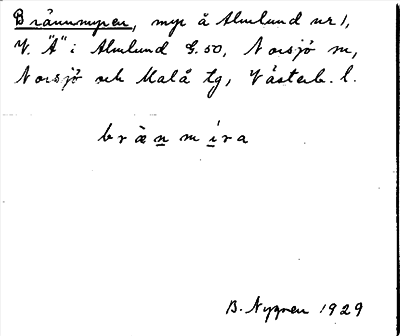 Brännmyren, myr å Almlund nr 1,
V. "Ä" i Almlund G.50, Norsjö sn,
Norsjö och Malå tg, Västerb. l.
brännmìra
B. Nygren 1929